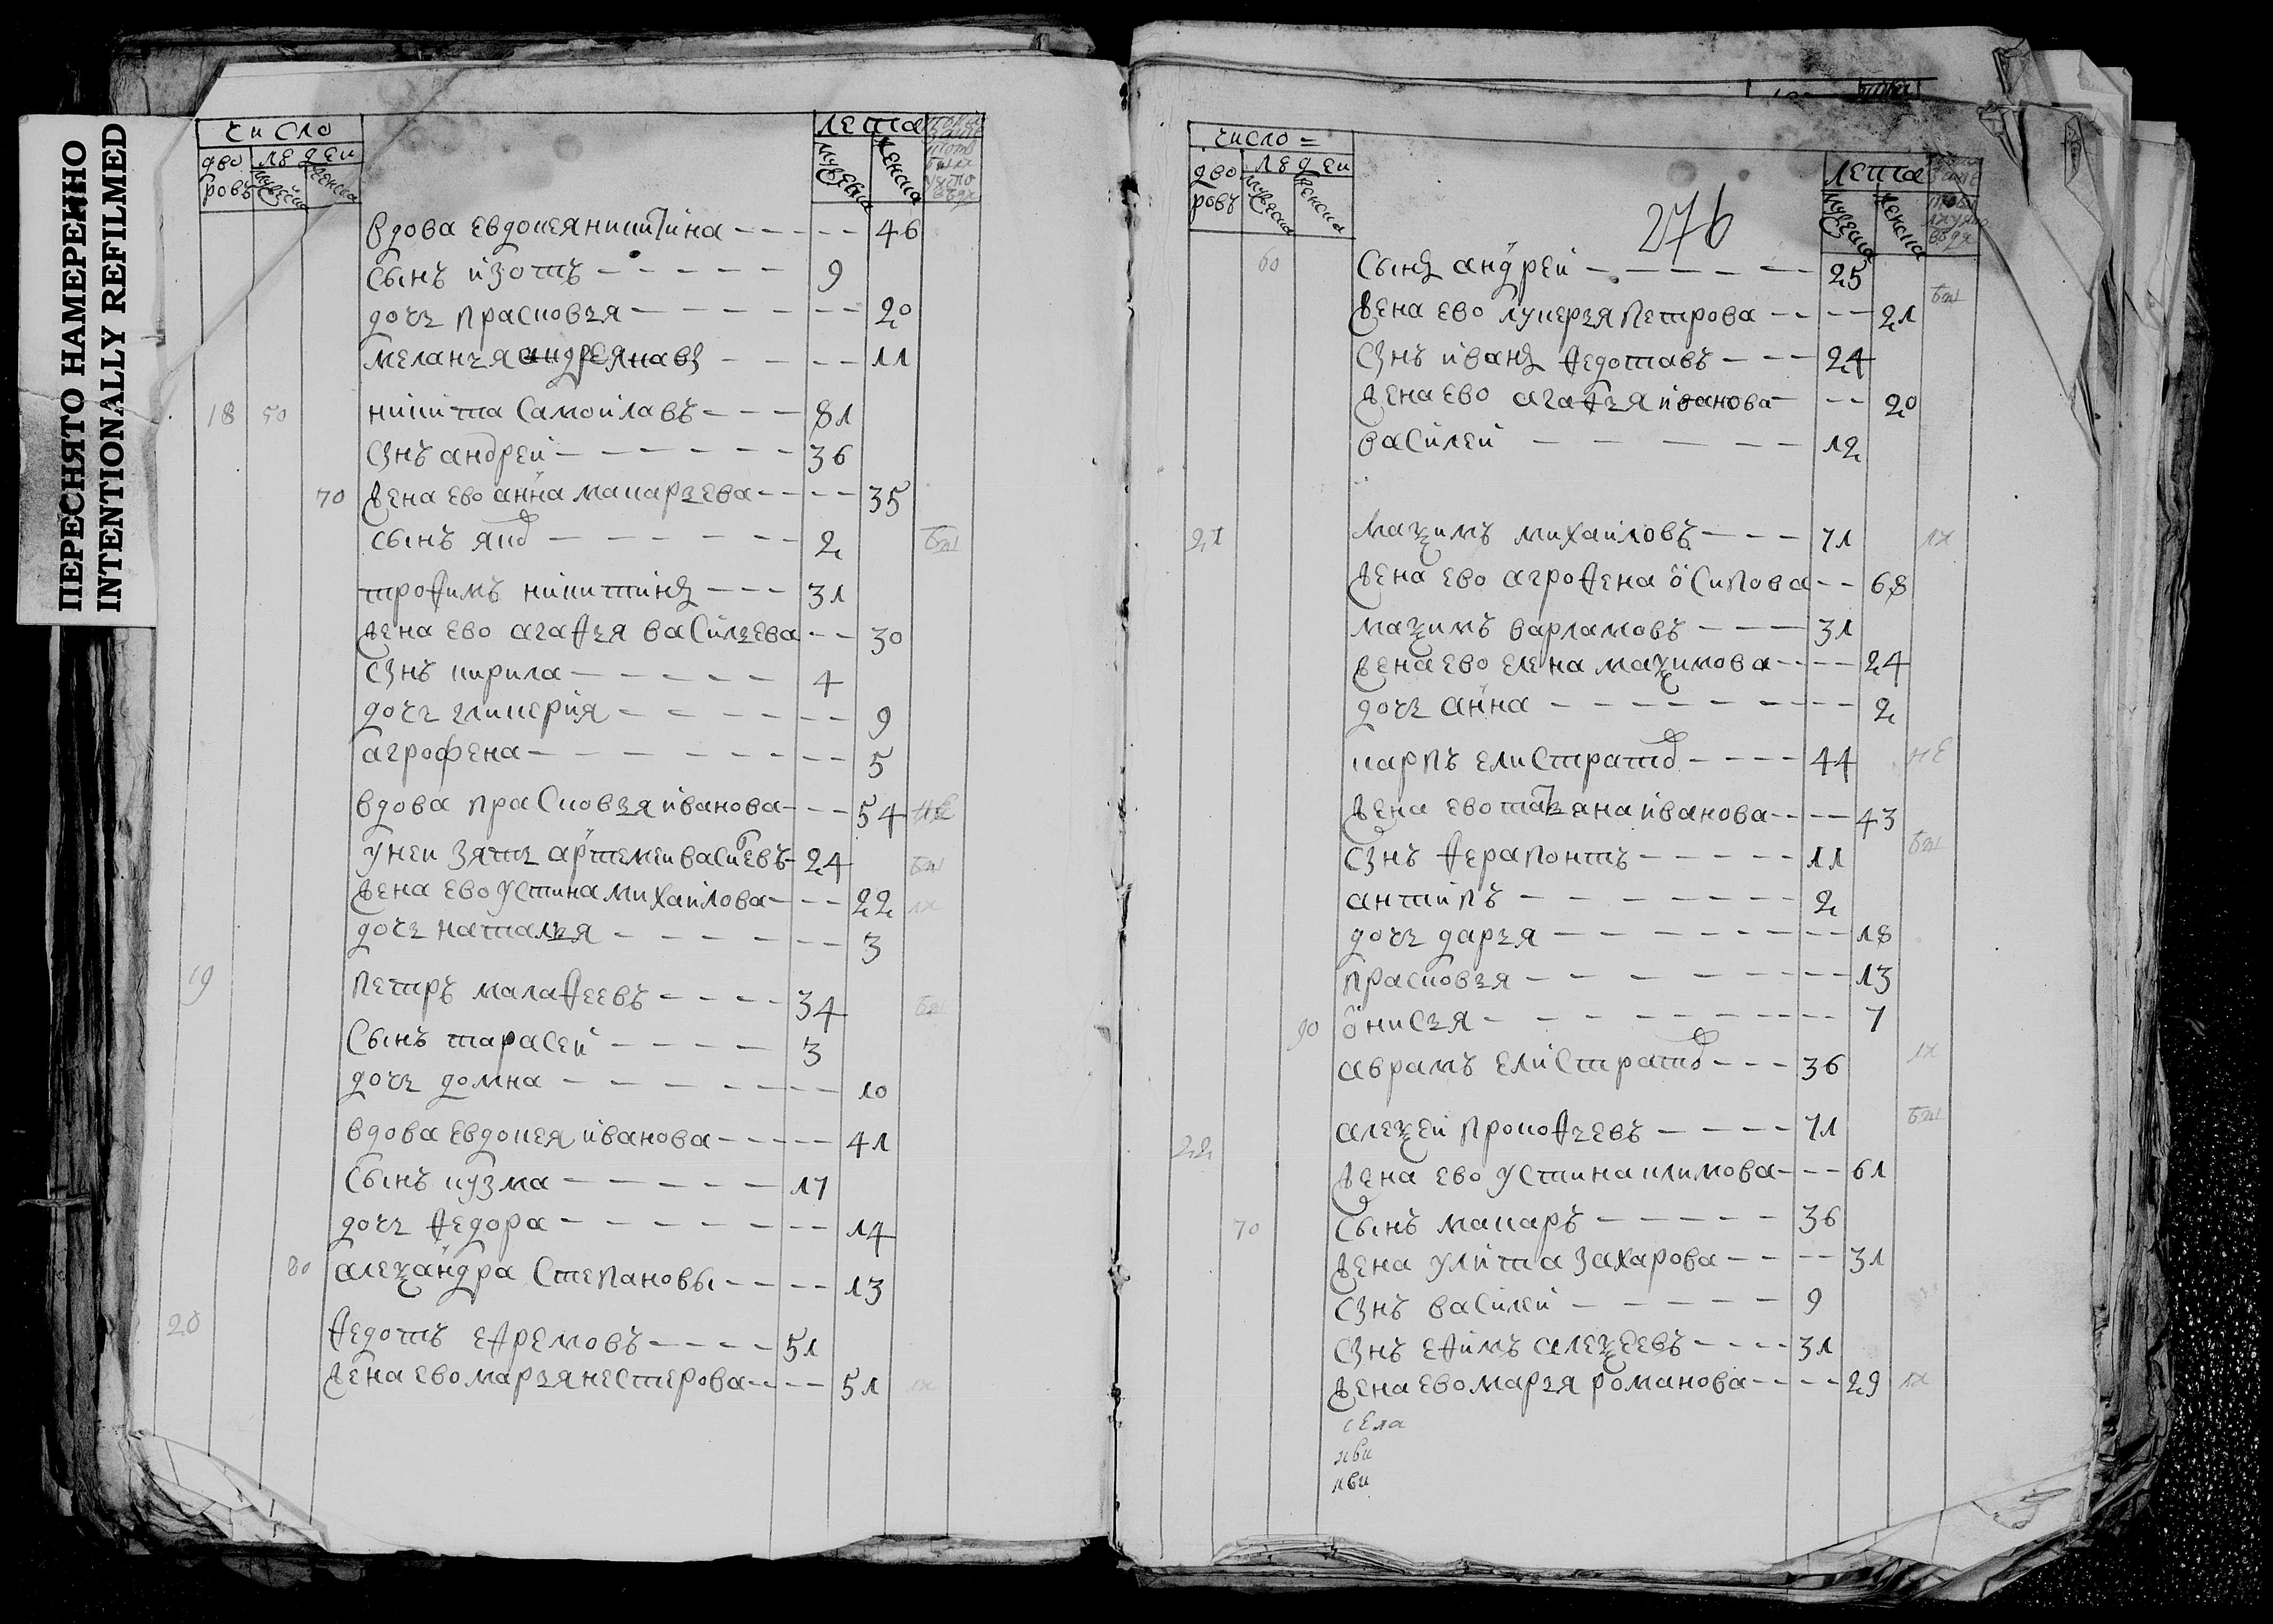 ПЕРЕСНЯТО НАМЕРЕННО
INTENTIONALLY REFILMED
число
лета
дво людеи
ровъ мужеска женска
мужеска женска
вдова евдокея никитина 46
сынъ изотъ 9
дочь прасковья 20
меланья андреянавы 11
18 50 никита самоилавъ 81
сынъ андреи 36
70 жена ево анна макарьева 35
сынъ яков 2 бы
трофимъ никитинъ 31
жена ево агафья васильева 30
сынъ кирила 4
дочь гликерия 9
агрофена 5
вдова прасковья иванова 54 не
у неи зять артемеи васильевъ 24 бы
жена ево устина михаилова 22 ли
дочь наталья 3
19 петръ малафеевъ 34 бы
сынъ тарасеи 3
дочь домна 10
вдова евдокея иванова 41
сынъ кузма 17
дочь федора 14
80 алеѯандра степановы 13
20 федотъ ефремовъ 51
жена ево марья нестерова 51 ли
число
276
дво людеи
ровъ мужеска женска
лета
мужеска женска
60 сынъ андреи 25
жена ево лукерья петрова 21 бы
сынъ иванъ федотавъ 24
жена ево агафья иванова 20
василеи 12
21 маѯимъ михаиловъ 71 ли
жена ево агрофена осипова 68
маѯимъ варламовъ 31
жена ево елена маѯимова 24
дочь анна 2
карпъ елистратов 44 не
жена ево татьяна иванова 43
сынъ ферапонтъ 11 бы
антипъ 2
дочь дарья 18
прасковья 13
90 онисья 7
аврамъ елистратов 36 ли
22 алеѯеи прокофьевъ 71 бы
жена ево устина климова 61
70 сынъ макаръ 36
жена улита захарова 31
сынъ василеи 9
сынъ ефимъ алеѯеевъ 31
жена ево марья романова 29 ли
села